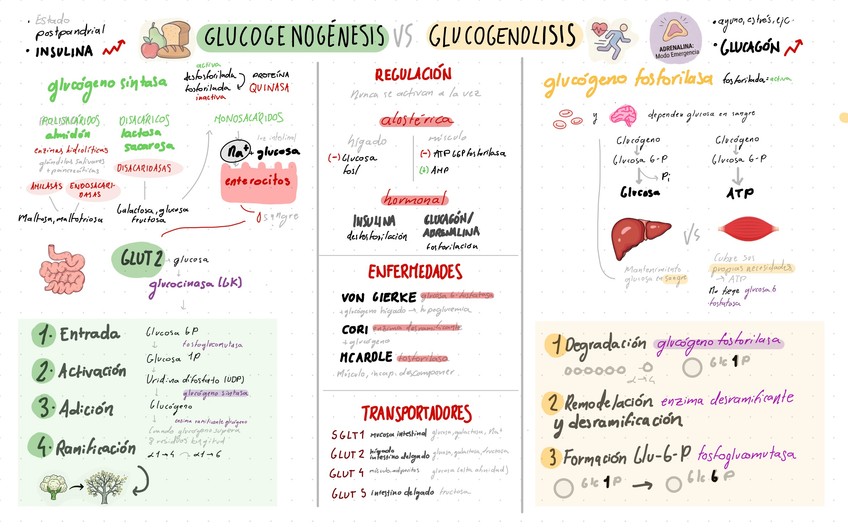 Estado
postpandrial
• INSULINA
GLUCOGENOGÉNESIS VS GLUCOGENOLISIS
ADRENALINA:
Modo Emergencia
• ayuno, estrés, ejc
• GLUCAGÓN
glucógeno sintasa
activa
desfosforilada
fosforilada
inactiva
PROTEÍNA
QUINASA
POLISACÁRIDOS
almidón
enzimas hidrolíticas
glándulas salivares
o pancreáticas
AMILASAS
ENDOSACARI-
DASAS
Maltosa, maltotriosa
DISACÁRIDOS
lactosa
sacarosa
DISACARIDASAS
Galactosa, glucosa
fructosa
MONOSACÁRIDOS
luz intestinal
Na+ glucosa
enterocitos
sangre
GLUT 2
glucosa
glucocinasa (GK)
1. Entrada
2. Activación
3. Adición
4. Ramificación
Glucosa 6P
fosfoglucomutasa
Glucosa 1P
Uridina difosfato (UDP)
glucógeno sintasa
Glucógeno
enzima ramificante glucógeno
Cuando glucógeno supera
8 residuos longitud
α1→4 → α1→6
REGULACIÓN
Nunca se activan a la vez
alostérica
hígado
(-) Glucosa
músculo
(-) ATP G6P fosforilasa
(+) AMP
hormonal
INSULINA
desfosforilación
GLUCAGÓN/
ADRENALINA
fosforilación
ENFERMEDADES
VON GIERKE glucosa 6-fosfatasa
↓glucógeno hígado → hipoglucemia
CORI enzima desramificante
↓ glucógeno
MCARDLE fosforilasa
Músculo, incap. descomponer.
TRANSPORTADORES
SGLT1 mucosa intestinal glucosa, galactosa, Na+
GLUT 2 hígado intestino delgado glucosa, galactosa, fructosa
GLUT 4 músculo adipocitos glucosa (alta afinidad)
GLUT 5 intestino delgado fructosa
glucógeno fosforilasa fosforilada: activa
y dependen glucosa en sangre
Glucógeno
Glucosa 6-P
Pi
Glucosa
Glucógeno
Glucosa 6-P
ATP
VS
Mantenimiento
glucosa en sangre
Cubre sus
propias necesidades
→ ATP
No tiene glucosa 6
fosfatasa
1 Degradación glucógeno fosforilasa
α1→4
Glc 1P
2 Remodelación enzima desramificante
y desramificación
3 Formación Glu-6-P fosfoglucomutasa
Glc 1P → Glc 6P